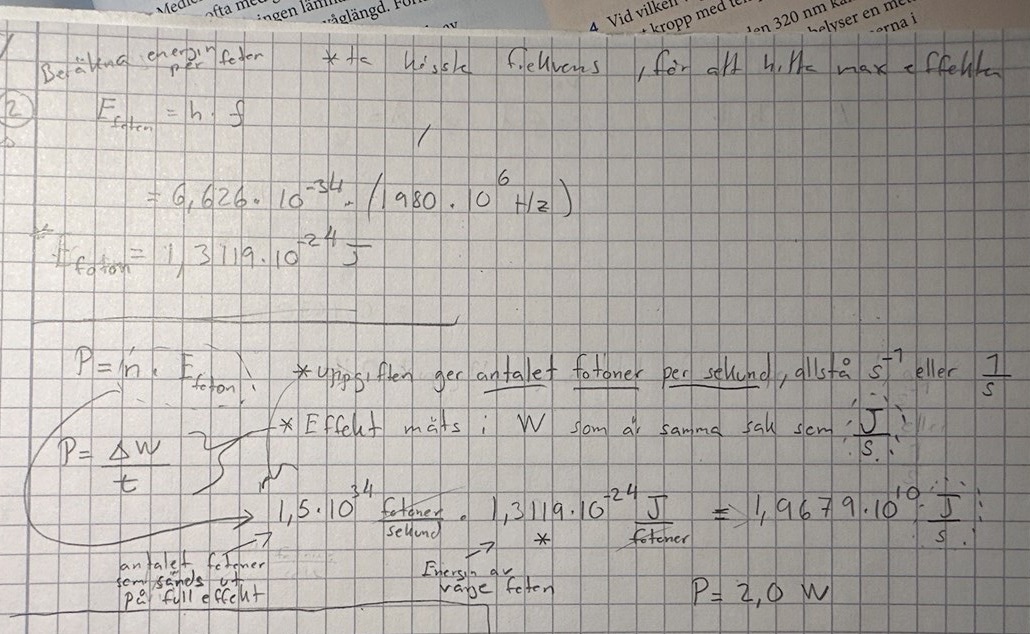 Medic
ofta med
ingen lämn
våglängd. För
4 Vid vilken
kropp med ten
den 320 nm ka
belyser en me
erna i
Beräkna energin per foton * ta högsta frekvens , för att hitta max effekten
2 E_foton = h · f
= 6,626 · 10^-34 · (1980 · 10^6 Hz)
* E_foton = 1,3119 · 10^-24 J
P = ṅ · E_foton * uppgiften ger antalet fotoner per sekund, alltså s^-1 eller 1/s
* Effekt mäts i W som är samma sak som J/s
P = ΔW/t
1,5 · 10^34 fotoner/sekund · 1,3119 · 10^-24 J/fotoner = 1,9679 · 10^10 J/s
*
antalet fotoner
som sänds ut
på full effekt
Energin av
varje foton
P = 2,0 W